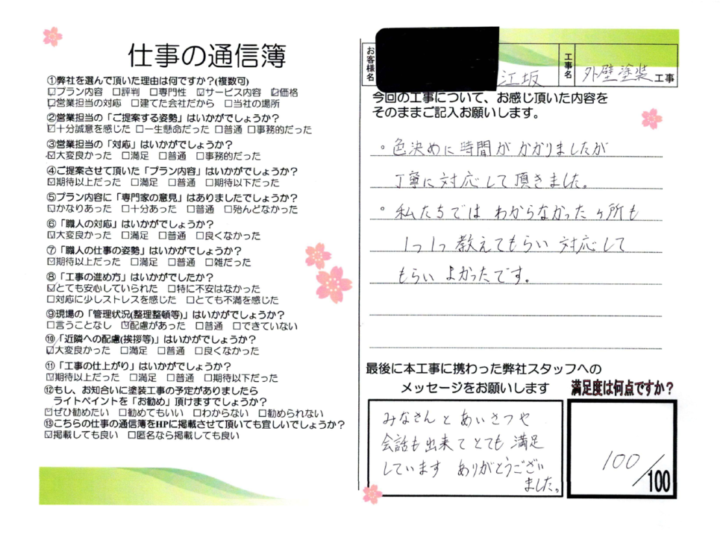 仕事の通信簿
①弊社を選んで頂いた理由は何ですか?(複数可)
☑プラン内容 □評判 □専門性 ☑サービス内容 ☑価格
☑営業担当の対応 □建てた会社だから □当社の場所
②営業担当の「ご提案する姿勢」はいかがでしょうか?
☑十分誠意を感じた □一生懸命だった □普通 □事務的だった
③営業担当の「対応」はいかがでしょうか?
☑大変良かった □満足 □普通 □事務的だった
④ご提案させて頂いた「プラン内容」はいかがでしょうか?
☑期待以上だった □満足 □普通 □期待以下だった
⑤プラン内容に「専門家の意見」はありましたでしょうか?
☑かなりあった □十分あった □普通 □殆んどなかった
⑥「職人の対応」はいかがでしたか?
☑大変良かった □満足 □普通 □良くなかった
⑦「職人の仕事の姿勢」はいかがでしょうか?
☑期待以上だった □満足 □普通 □雑だった
⑧「工事の進め方」はいかがでしたか?
☑とても安心していられた □特に不安はなかった
□対応に少しストレスを感じた □とても不満を感じた
⑨現場の「管理状況(整理整頓等)」はいかがでしょうか?
□言うことなし ☑配慮があった □普通 □できていない
⑩「近隣への配慮(挨拶等)」はいかがでしょうか?
☑大変良かった □満足 □普通 □良くなかった
⑪「工事の仕上がり」はいかがでしょうか?
☑期待以上だった □満足 □普通 □期待以下だった
⑫もし、お知合いに塗装工事の予定がありましたら
ライトペイントを「お勧め」頂けますでしょうか?
☑ぜひ勧めたい □勧めてもいい □わからない □勧められない
⑬こちらの仕事の通信簿をHPに掲載させて頂いても宜しいでしょうか?
☑掲載しても良い □匿名なら掲載しても良い
お客様名 江坂 工事名 外壁塗装工事
今回の工事について、お感じ頂いた内容を
そのままご記入お願いします。
。色決めに時間がかかりましたが
丁寧に対応して頂きました。
。私たちではわからなかったヶ所も
1つ1つ教えてもらい対応して
もらいよかったです。
最後に本工事に携わった弊社スタッフへの
メッセージをお願いします
みなさんとあいさつや
会話も出来てとても満足
しています ありがとうござい
ました。
満足度は何点ですか?
100/100